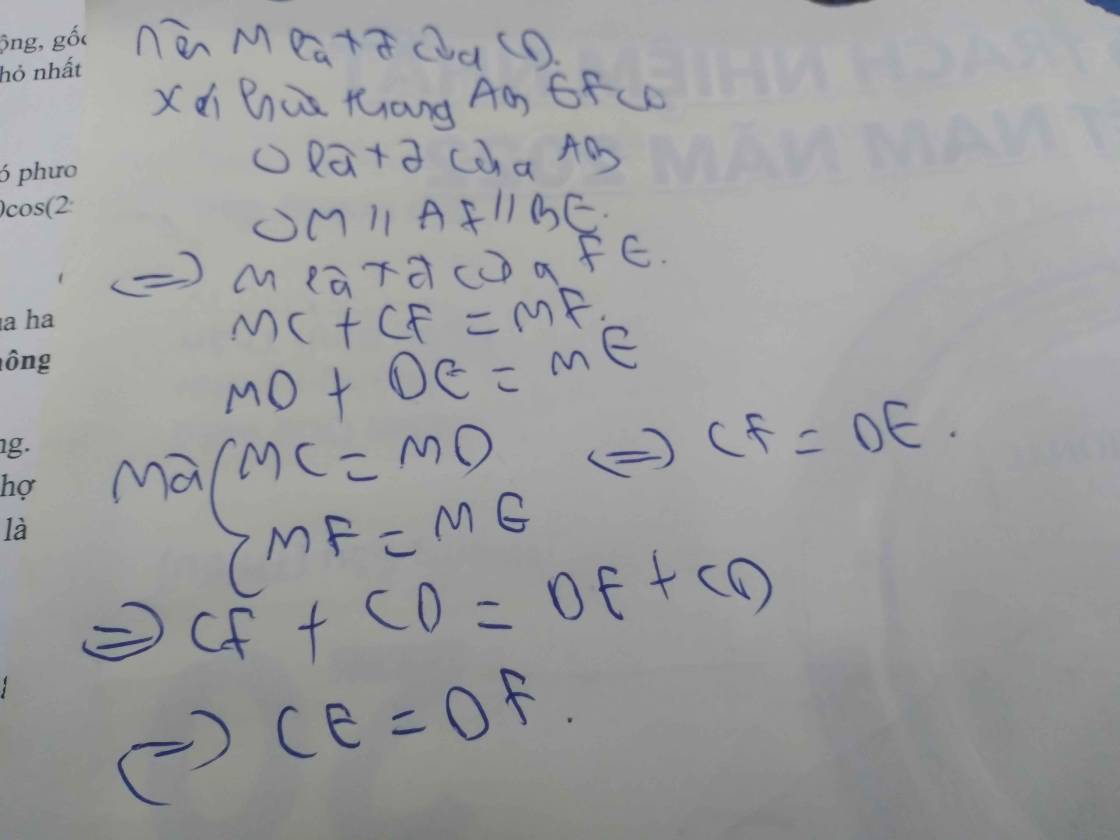 ộng, gốc
hỏ nhất
ó phươ
)cos(2
ủa ha
hông
ng.
hợ
là
Nên M là t đ của CD.
Xét hình thang AB EF CD
O là t đ của AB
OM // AF // BE.
<=> M là t đ của FE.
MC + CF = MF.
MD + DE = ME
Mà { MC = MD <=> CF = DE.
MF = ME
=> CF + CD = DE + CD
<=> CE = DF.
TRÁCH NHIỆM
T NAM NĂM